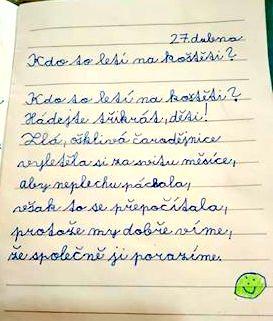 27. dubna
Kdo to letí na koštěti?
Kdo to letí na koštěti?
Hádejte třikrát, děti!
Zlá, ošklivá čarodějnice
vyletěla si za svitu měsíce,
aby neplechu páchala,
však to se přepočítala,
protože my dobře víme,
že společně ji porazíme.